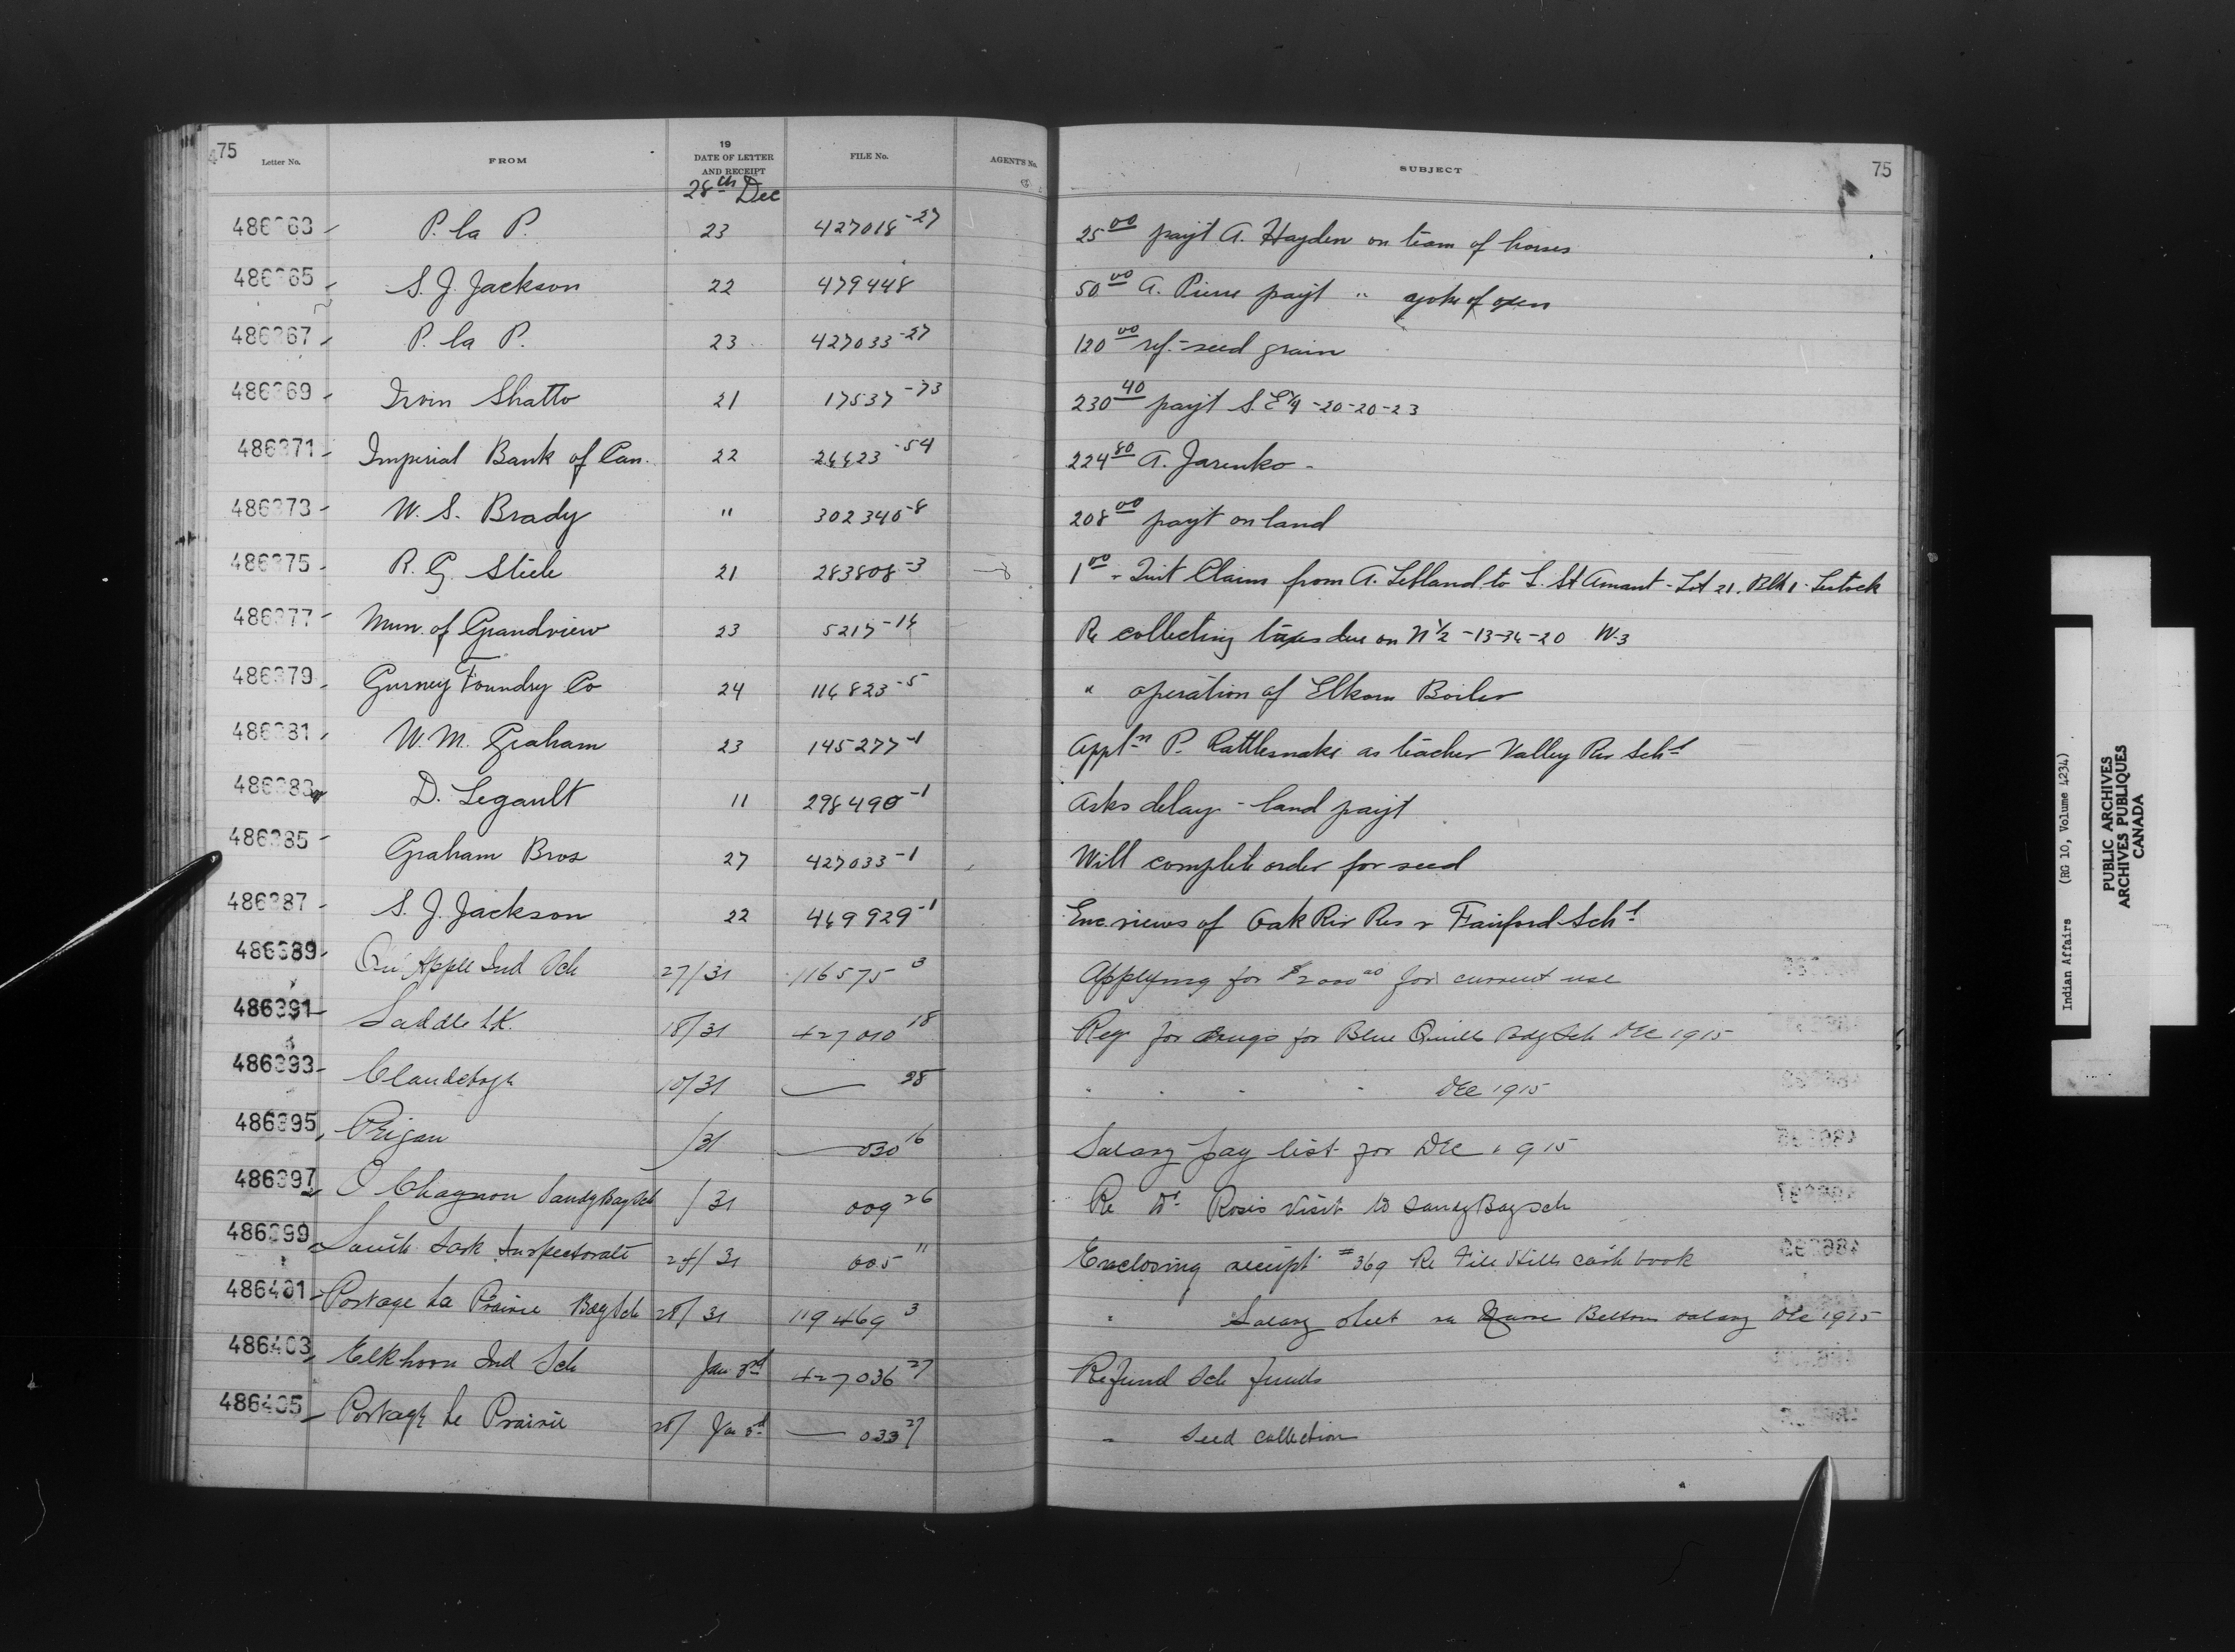 75
Letter No. FROM 19 DATE OF LETTER AND RECEIPT FILE No. AGENT'S No. SUBJECT 75
28th Dec
486363 P. la P. 23 427018-27 25 00 payt A. Hayden on team of horses
486365 S. J. Jackson 22 479448 50 00 A. Pierre payt " yoke of oxen
486367 P. la P. 23 427033-27 120 00 ref. seed grain
486369 Irvin Shatto 21 17537-73 230 40 payt S.E 1/4 -20-20-23
486371 Imperial Bank of Can. 22 26623-54 224 80 A. Jarenko -
486373 W. S. Brady " 302340-8 208 00 payt on land
486375 R. G. Steele 21 283808-3 1 00 - Quit Claim from A. Lebland to L. St Amant - Lot 21. Blk 1 - Lestock
486377 Mun. of Grandview 23 5217-14 Re collecting taxes due on N 1/2 -13-36-20 W-3
486379 Gurney Foundry Co 24 116823-5 " operation of Elkorn Boiler
486381 W. M. Graham 23 145277-1 Appln P. Rattlesnake as teacher Valley Riv Schl
486383 D. Legault 11 298490-1 Asks delay - land payt
486385 Graham Bros 27 427033-1 Will complete order for seed
486387 S. J. Jackson 22 469929-1 Enc. views of Oak Riv Res & Fairford Schl
486389 Qu'Apple Ind Sch 27/31 116575 3 Applying for $2000 00 for current use
486391 Saddle Lk. 18/31 427010 18 Req for Drugs for Blue Quills Bdg Sch Dec 1915
486393 Clandeboye 10/31 — 28 " " " " Dec 1915
486395 Peigan /31 — 030 16 Salary pay list for Dec 1915
486397 O Chagnon Sandy Bay Sch /31 009 26 Re Dr Ross visit to Sandy Bay Sch
486399 South Sask Inspectorate 28/31 005 11 Enclosing receipt #369 Re File Hills Cash book
486401 Portage La Prairie Bdg Sch 28/31 119469 3 " Salary sheet re Belton salary Dec 1915
486403 Elkhorn Ind Sch Jan 3rd 427036 27 Refund Sch funds
486405 Portage La Prairie 28/ Jan 3rd — 033 27 " Seed collection
Indian Affairs (RG 10, Volume 4234)
PUBLIC ARCHIVES
ARCHIVES PUBLIQUES
CANADA